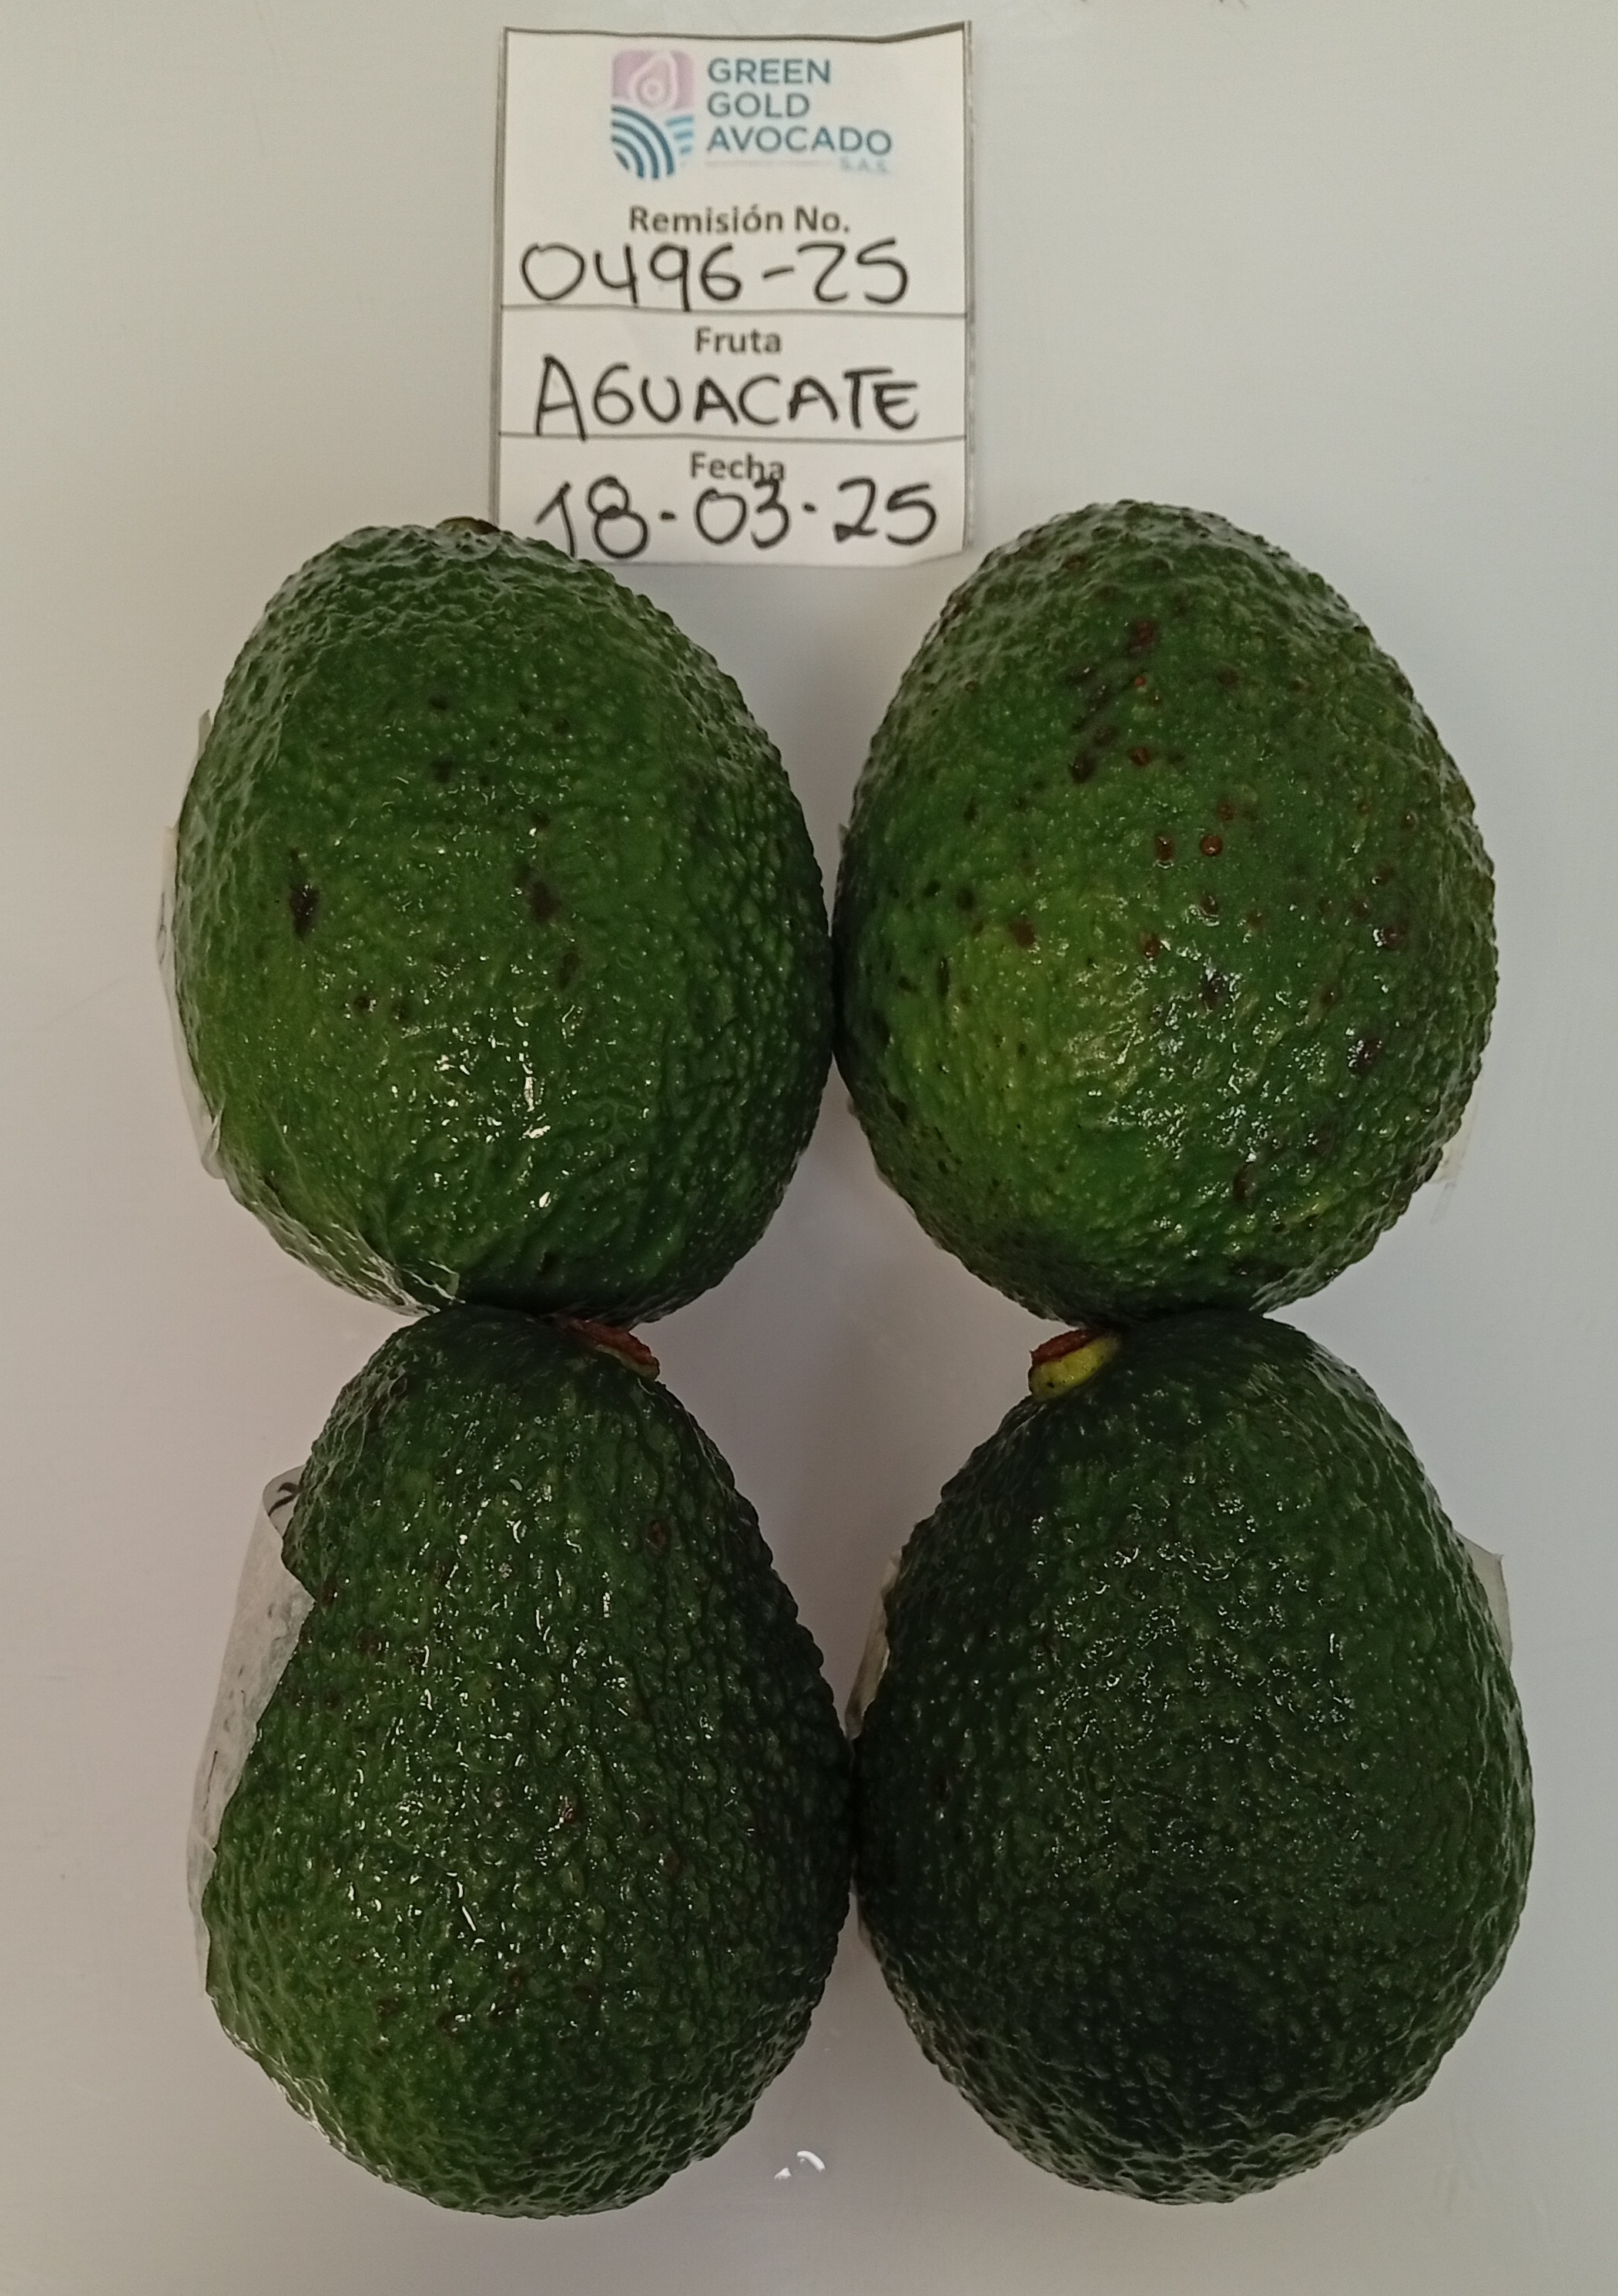 GREEN
GOLD
AVOCADO
S.A.S.
Remisión No.
0496-25
Fruta
AGUACATE
Fecha
18-03-25